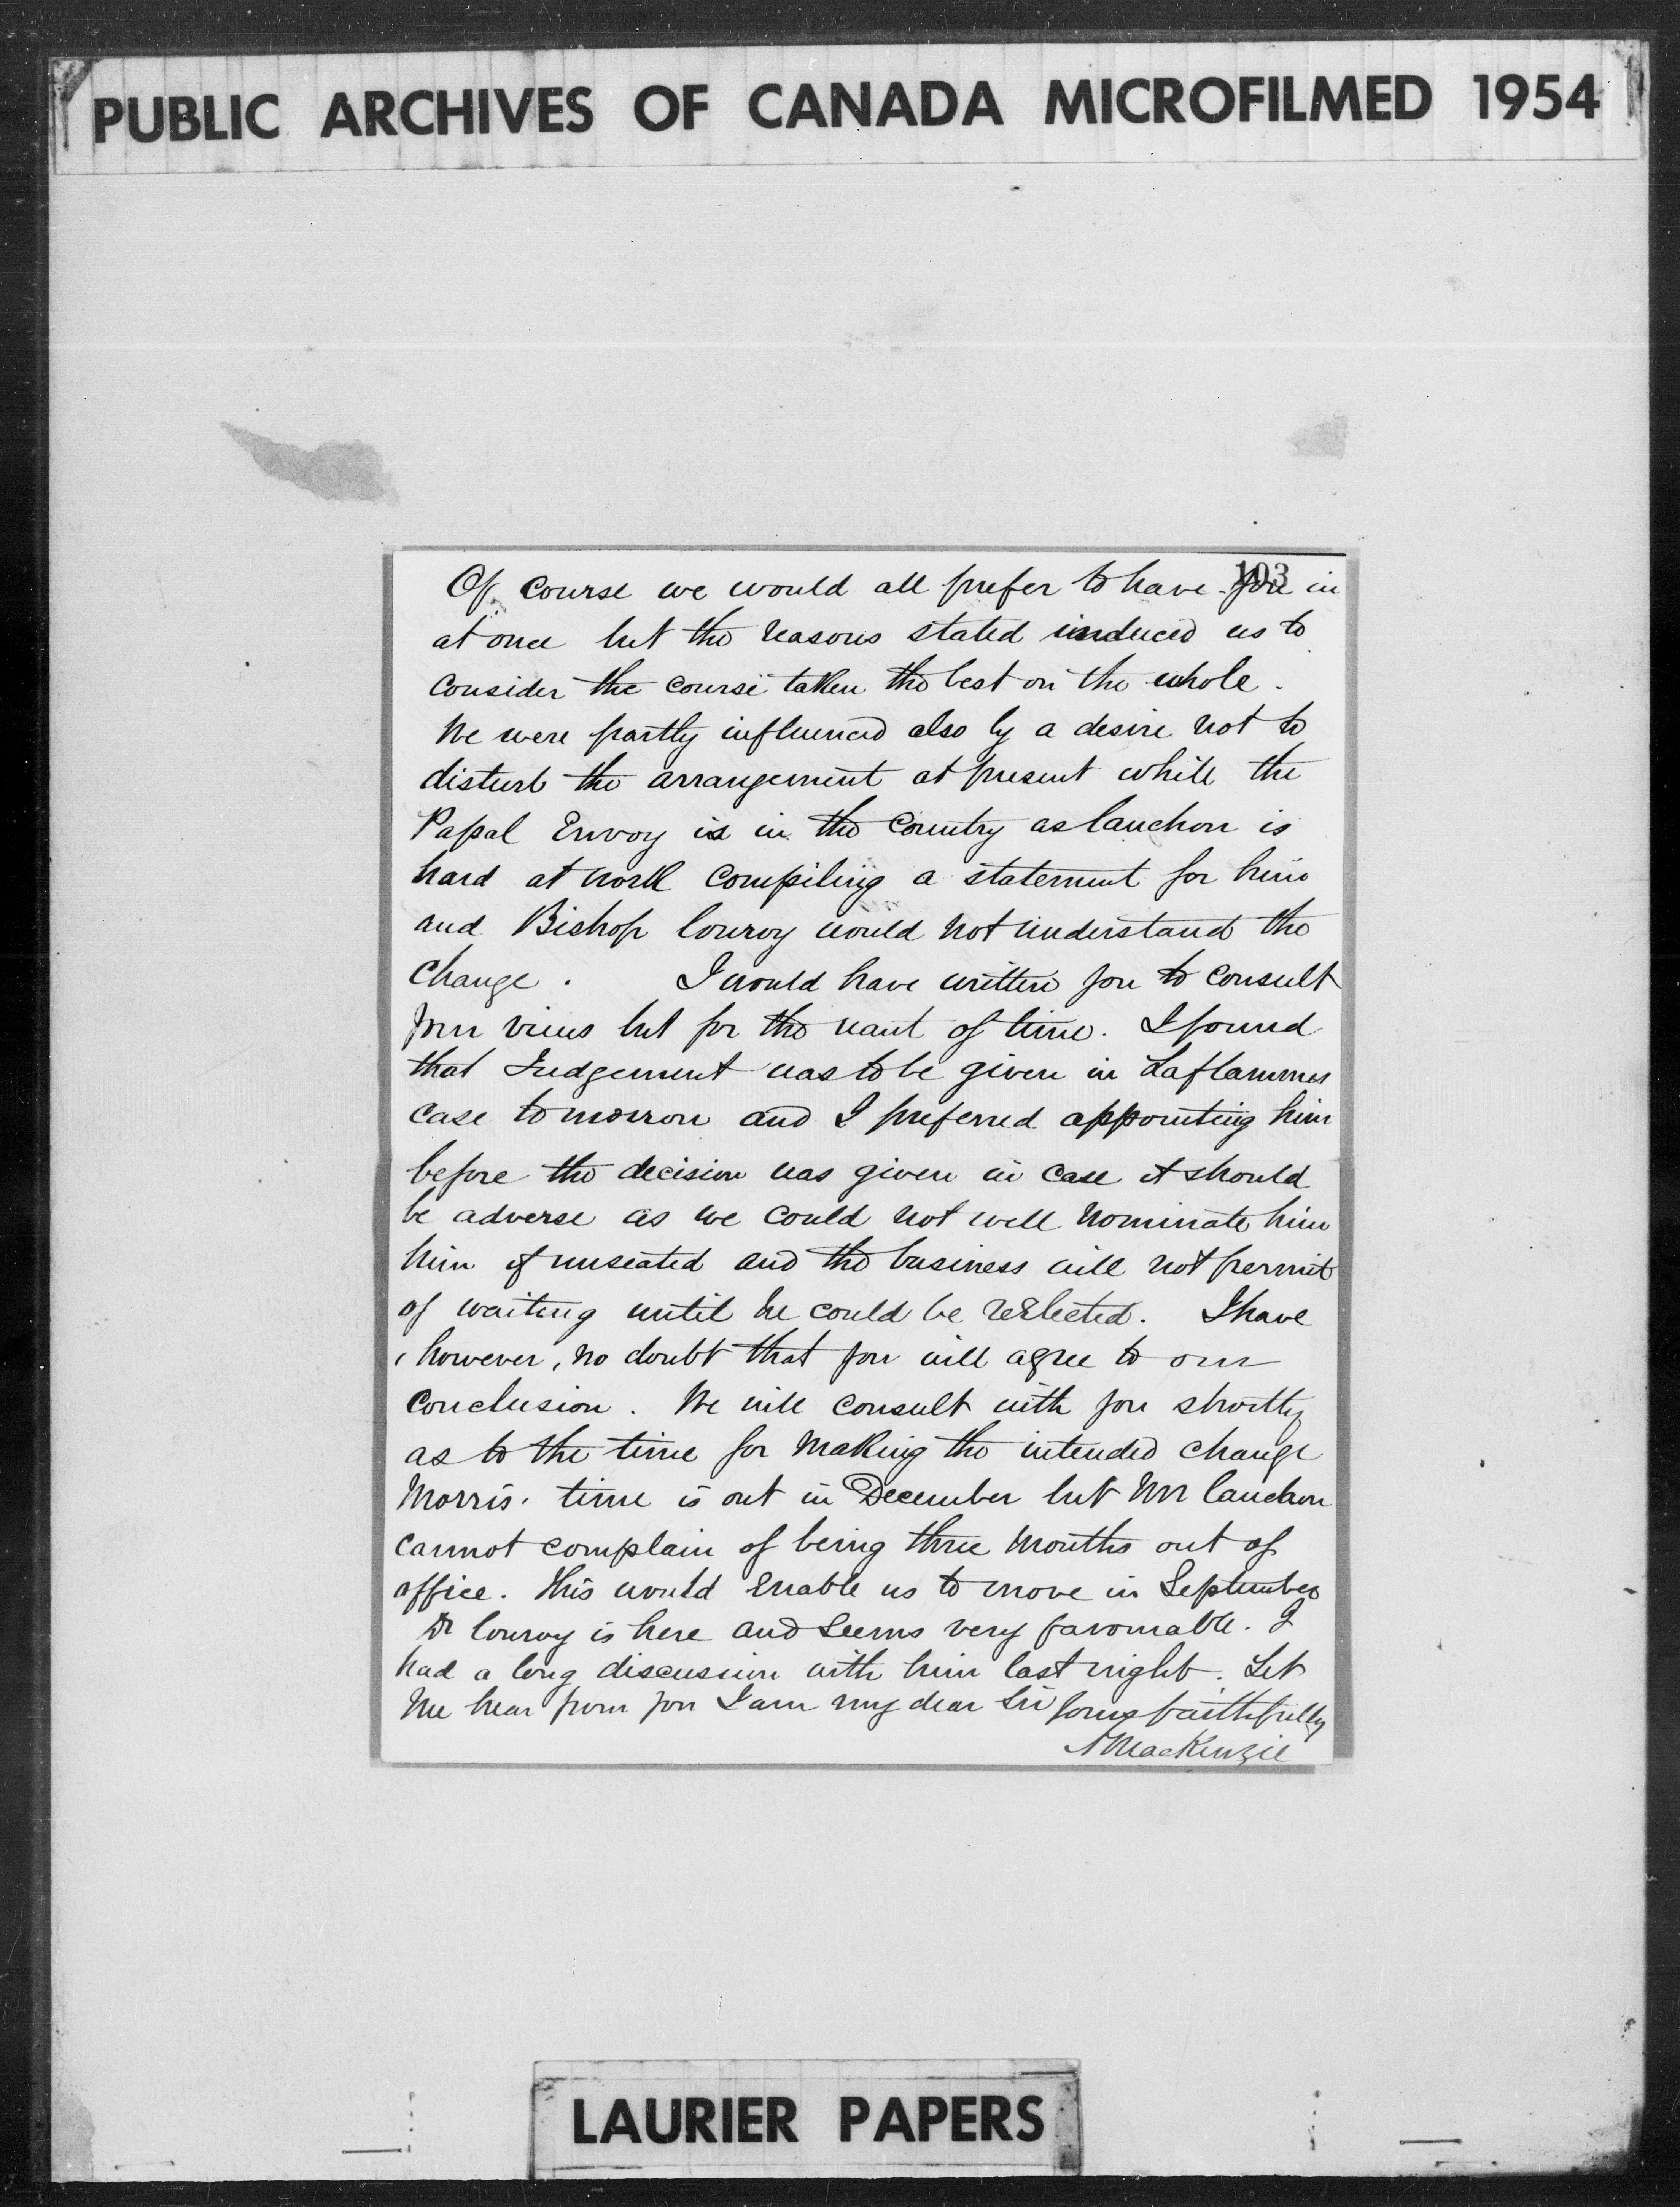 PUBLIC ARCHIVES OF CANADA MICROFILMED 1954
103
Of course we would all prefer to have you in
at once but the reasons stated induced us to
consider the course taken the best on the whole.
We were partly influenced also by a desire not to
disturb the arrangement at present while the
Papal Envoy is in the country as Cauchon is
hard at work compiling a statement for him
and Bishop Conroy would not understand the
change. I would have written you to consult
your views but for the want of time. I found
that Judgement was to be given in Laflammes
case tomorrow and I preferred appointing him
before the decision was given in case it should
be adverse as we could not well nominate him
him if unseated and the business will not permit
of waiting until he could be reelected. I have
, however, no doubt that you will agree to our
conclusion. We will consult with you shortly
as to the time for making the intended change
Morris' time is out in December but Mr Cauchon
cannot complain of being three months out of
office. This would enable us to move in September
Dr Conroy is here and seems very favourable. I
had a long discussion with him last night. Let
me hear from you I am my dear Sir Yours faithfully
A MacKenzie
LAURIER PAPERS